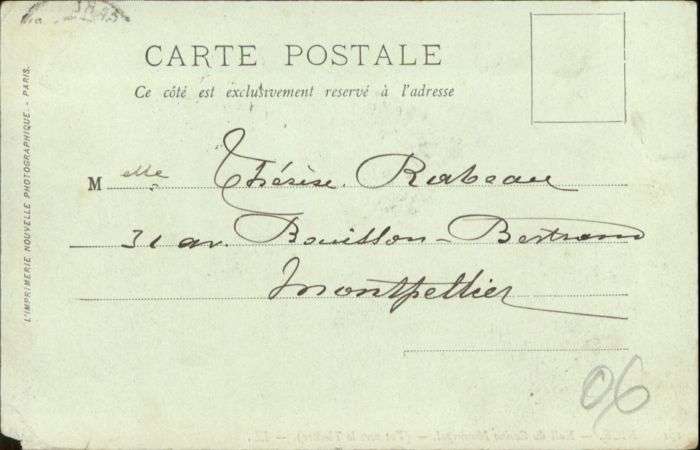 CARTE POSTALE
Ce côté est exclusivement reservé à l'adresse
Melle Thérèse Rabeau
31 av. Bouisson-Bertrand
Montpellier
06
L'IMPRIMERIE NOUVELLE PHOTOGRAPHIQUE. - PARIS.